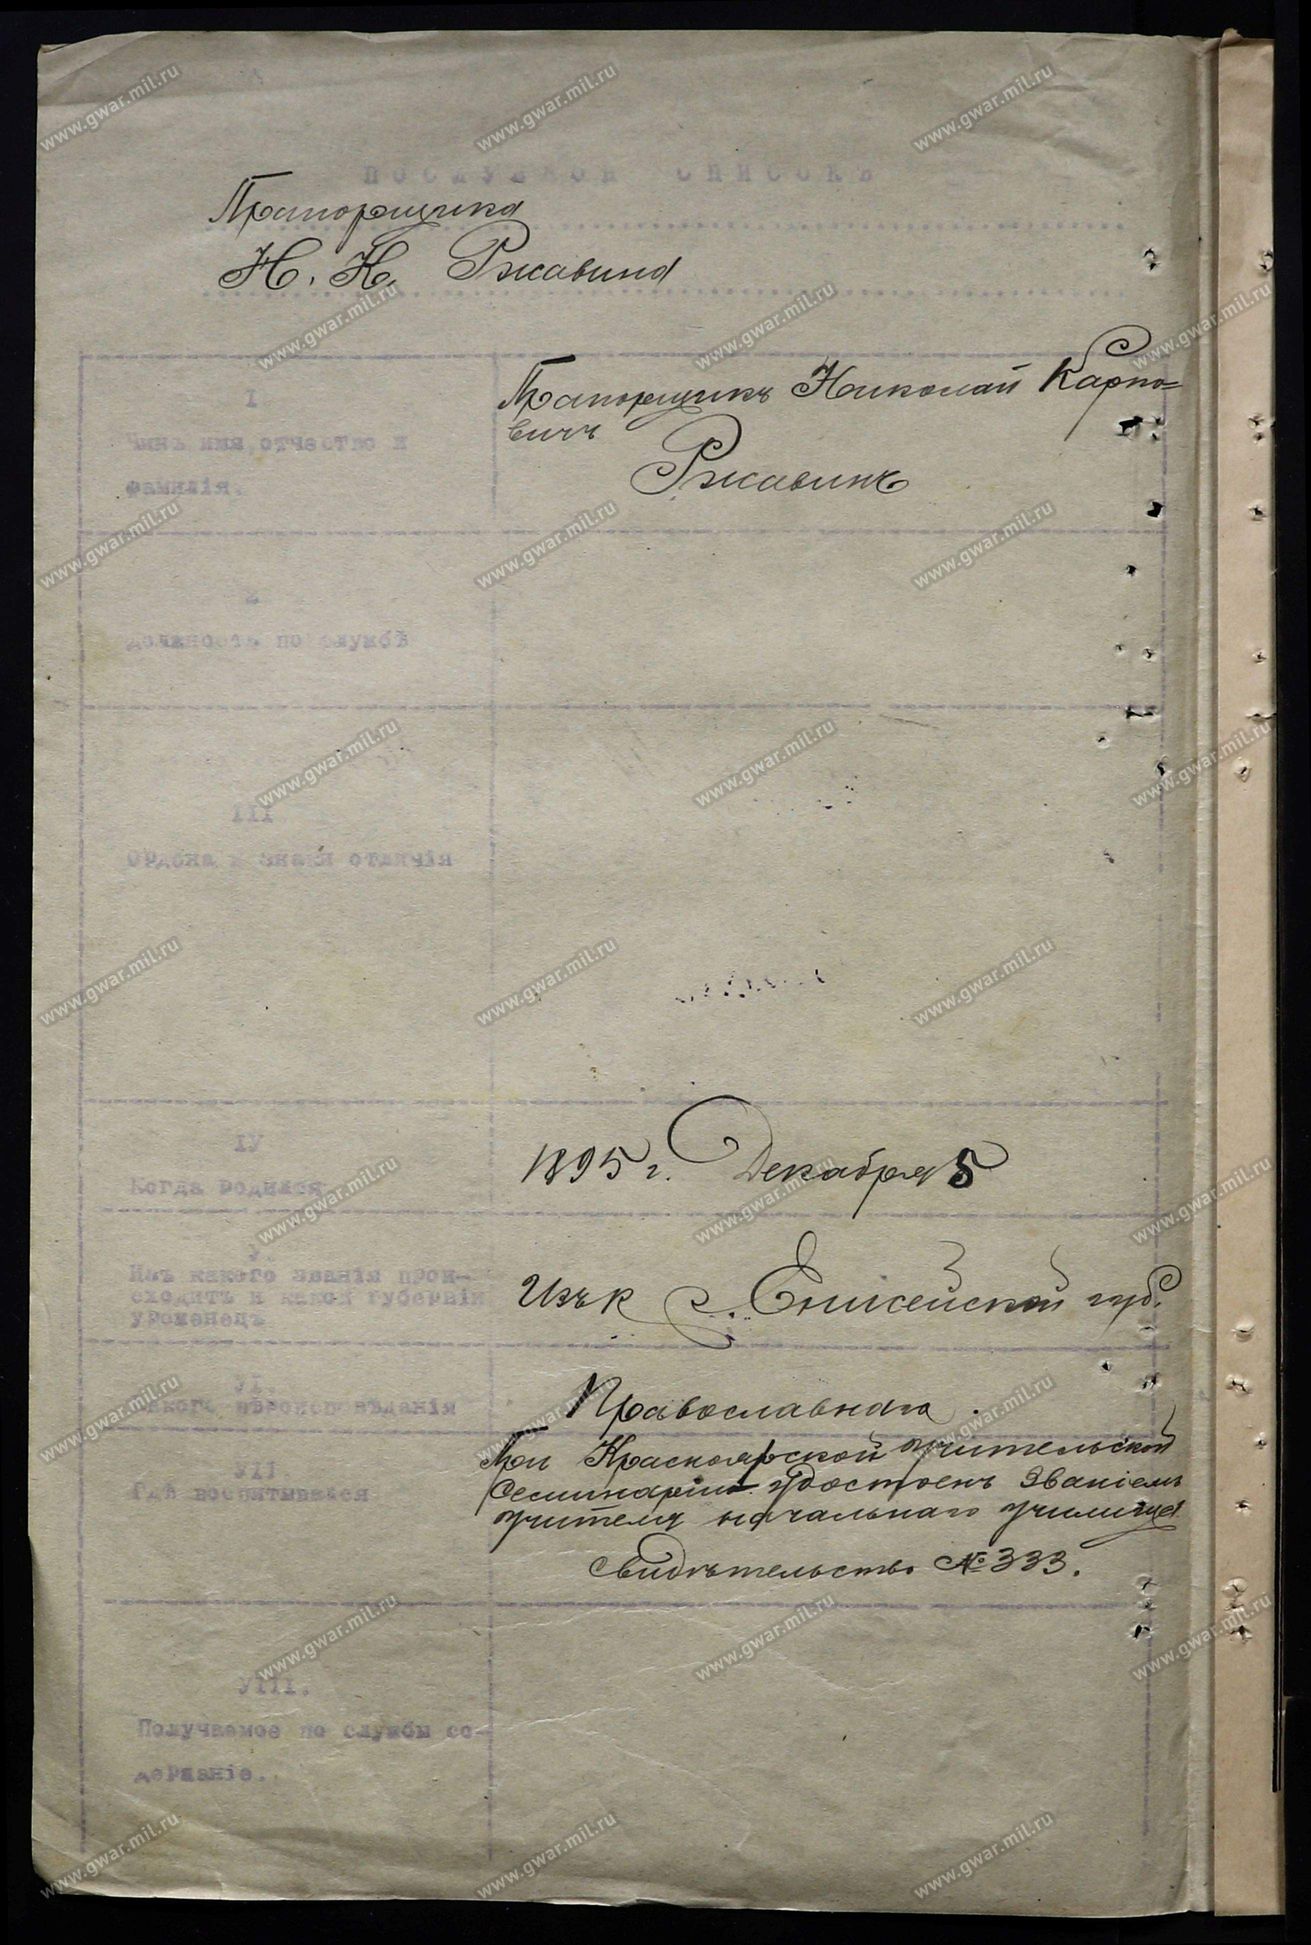 ПОСЛУЖНОЙ СПИСОКЪ
Прапорщика
Н. К. Ржавина
I
Чинъ имя, отчество и
фамилія.
Прапорщикъ Николай Карпо=
вичъ
Ржавинъ
2
Должность по службѣ
III
Ордена и знаки отличія
IУ
Когда родился
1895 г. Декабря 5
У.
Изъ какого званія прои-
сходитъ и какой губерніи
уроженецъ
Изъ к Енисейской губ.
УI.
Какого вѣроисповѣданія
Православнаго.
УII.
Гдѣ воспитывался
При Красноярской учительской
Семинаріи удостоенъ званіемъ
учителя начальнаго училища
Свидѣтельство № 333.
УIII.
Получаемое по службы со-
держаніе.
www.gwar.mil.ru